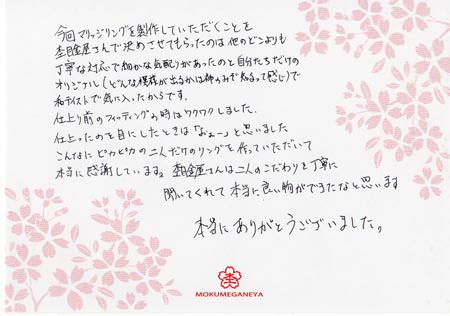 今回マリッジリングを製作していただくことを
杢目金屋さんで決めさせてもらったのは他のどこよりも
丁寧な対応で細かな気配りがあったのと自分たちだけの
オリジナル(どんな模様が出るかは神のみぞ知るって感じ)で
和テイストで気に入ったからです。
仕上り前のフィッティングの時はワクワクしました。
仕上ったのを目にしたときは「おぉ〜」と思いました
こんなに ピカピカの二人だけのリングを作っていただいて
本当に感謝しています。杢目金屋さんは二人のこだわりを丁寧に
聞いてくれて本当に良い物ができたなと思います
本当にありがとうございました。
MOKUMEGANEYA